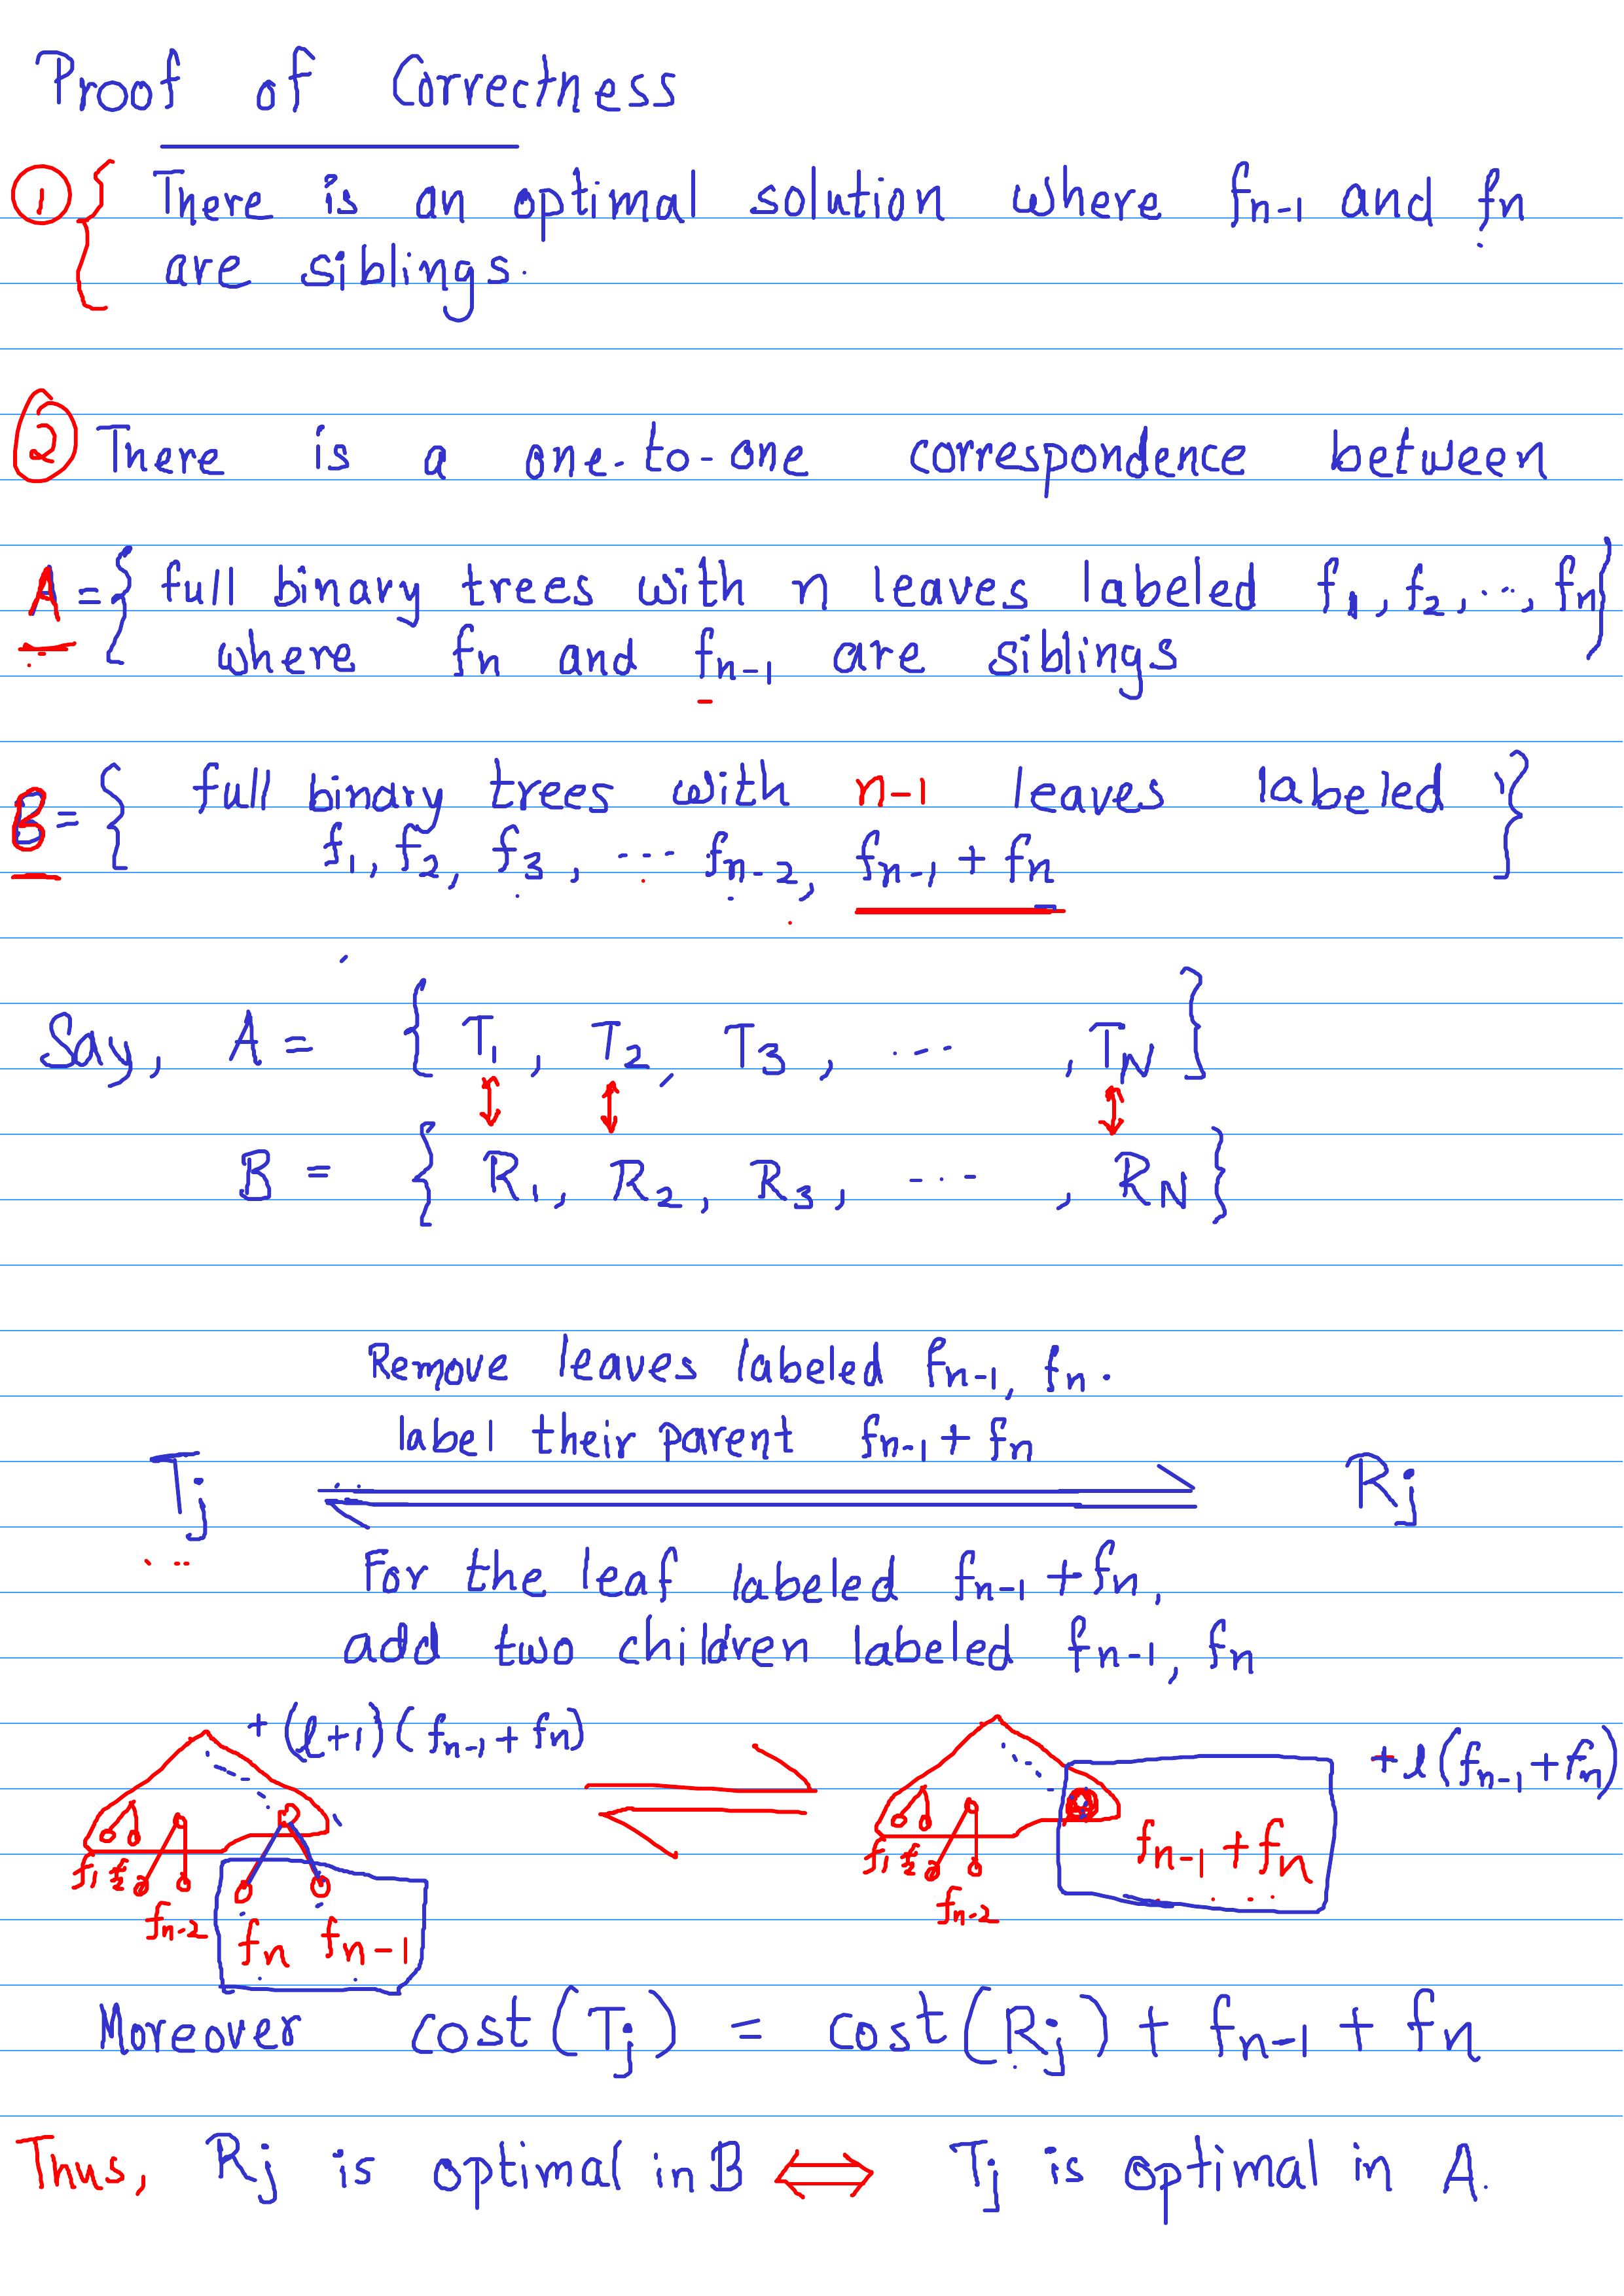 Proof of Correctness
① { There is an optimal solution where fn-1 and fn
are siblings.
② There is a one-to-one correspondence between
A = { full binary trees with n leaves labeled f1, f2, ..., fn }
where fn and fn-1 are siblings
B = { full binary trees with n-1 leaves labeled }
f1, f2, f3, ... fn-2, fn-1 + fn
Say, A = { T1, T2, T3, ... , TN }
B = { R1, R2, R3, ... , RN }
Remove leaves labeled fn-1, fn.
label their parent fn-1 + fn
Tj ⇌ Rj
For the leaf labeled fn-1 + fn,
add two children labeled fn-1, fn
+ (l+1)(fn-1 + fn) + l(fn-1 + fn)
f1 f2 fn-2 fn fn-1
f1 f2 fn-2 fn-1 + fn
Moreover cost(Tj) = cost(Rj) + fn-1 + fn
Thus, Rj is optimal in B ⇔ Tj is optimal in A.